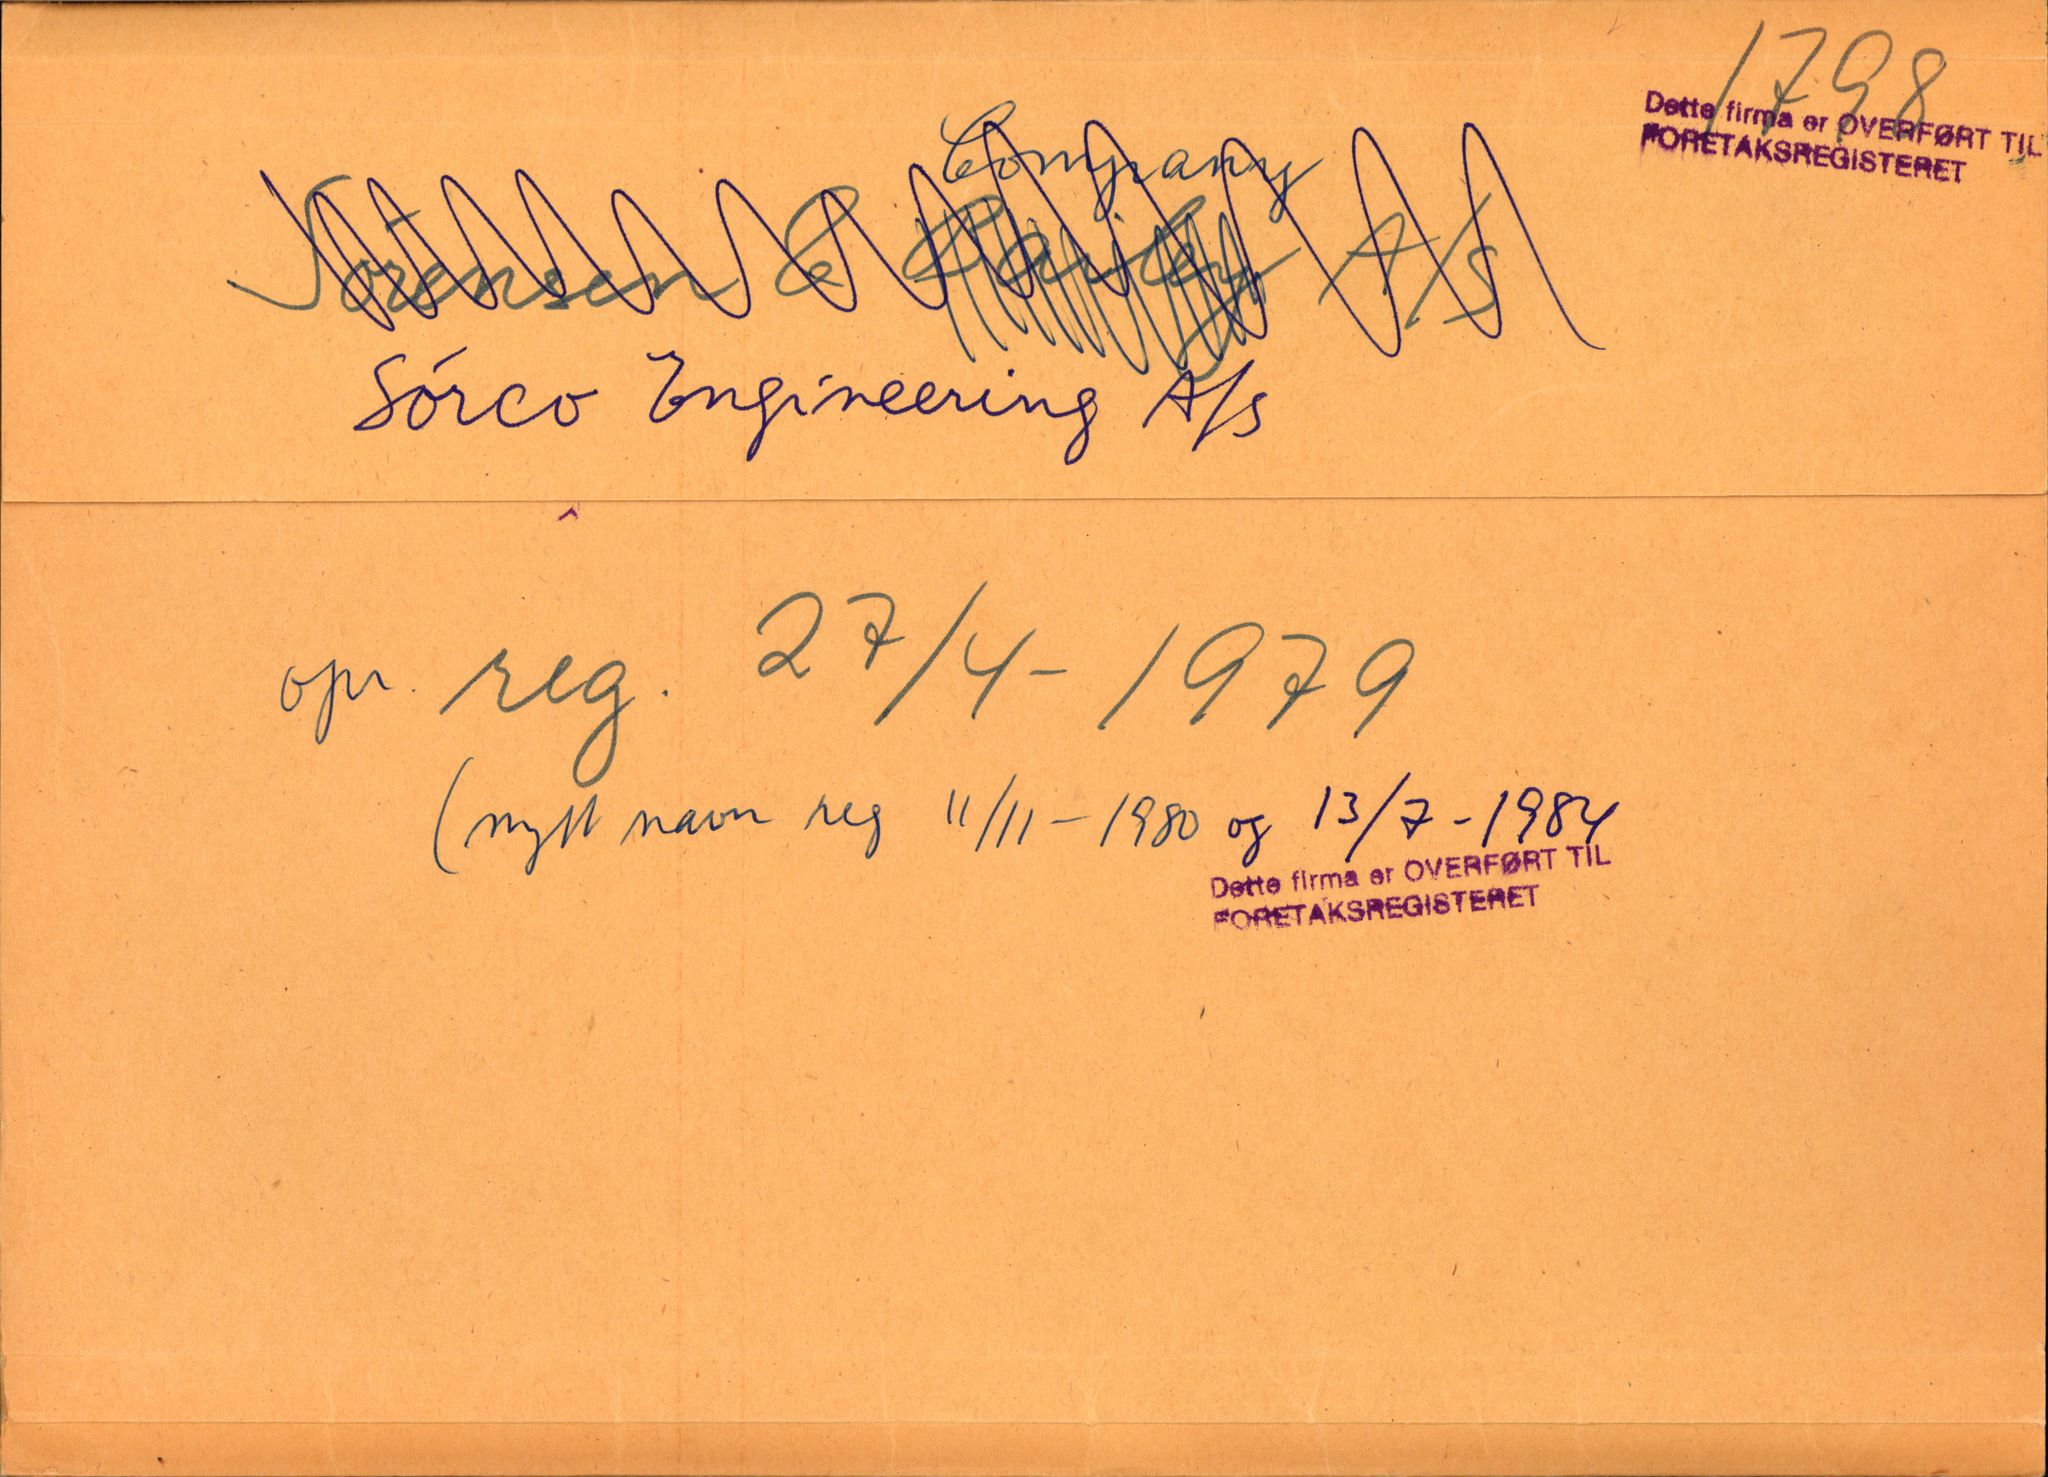 1798
Dette firma er OVERFØRT TIL
FORETAKSREGISTERET
Company
Sørensen & A/S
Sørco Engineering A/S
opr. reg. 27/4-1979
(nytt navn reg 11/11-1980 og 13/7-1984
Dette firma er OVERFØRT TIL
FORETAKSREGISTERET